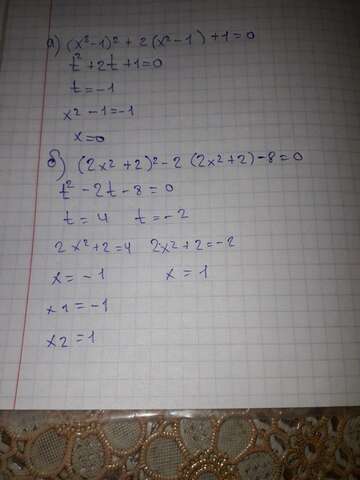 а) (x²-1)² + 2(x²-1) +1=0
t²+2t+1=0
t=-1
x²-1=-1
x=0
б) (2x²+2)²-2(2x²+2)-8=0
t²-2t-8=0
t=4 t=-2
2x²+2=4 2x²+2=-2
x=-1 x=1
x1=-1
x2=1